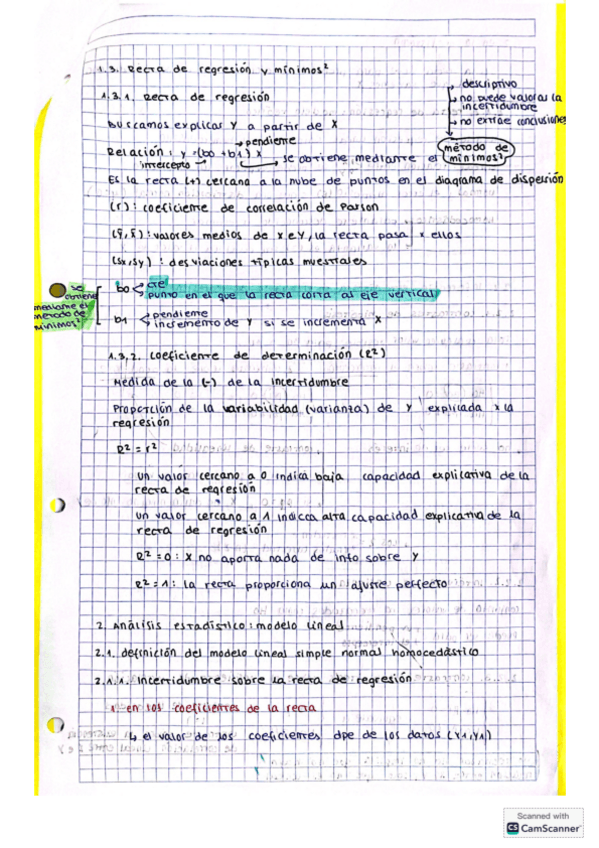 1.3. Recta de regresión y mínimos²
1.3.1. Recta de regresión
descriptivo
no puede valorar la incertidumbre
no extrae conclusiones
Buscamos explicar Y a partir de X
pendiente
Relación: y = (b0 + b1) x
intercepto
se obtiene mediante el
método de mínimos²
Es la recta (+) cercana a la nube de puntos en el diagrama de dispersión
(r): coeficiente de correlación de Parson
(ȳ, x̄): valores medios de X e Y, la recta pasa x ellos
(Sx, Sy): desviaciones típicas muestrales
se obtiene mediante el método de mínimos²
b0
cte
punto en el que la recta corta al eje vertical
b1
pendiente
incremento de Y si se incrementa X
1.3.2. Coeficiente de determinación (R²)
Medida de la (-) de la incertidumbre
Proporción de la variabilidad (varianza) de Y explicada x la
regresión
R² = r²
Un valor cercano a 0 indica baja capacidad explicativa de la
recta de regresión
Un valor cercano a 1 indica alta capacidad explicativa de la
recta de regresión
R² = 0: X no aporta nada de info sobre Y
R² = 1: la recta proporciona un ajuste perfecto
2. Análisis estadístico: modelo lineal
2.1. definición del modelo lineal simple normal homocedástico
2.1.1. Incertidumbre sobre la recta de regresión
1 en los coeficientes de la recta
↳ el valor de los coeficientes dpe de los datos (x1, y1)
Scanned with
CS CamScanner